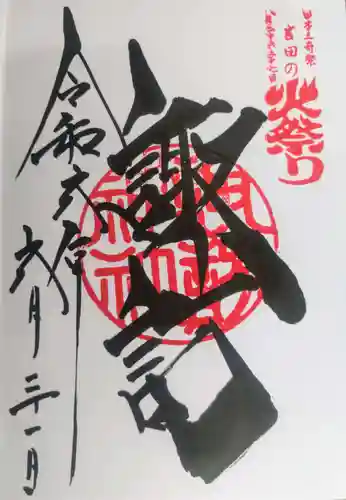 日本三奇祭
吉田の
火祭り
八月二十六・二十七日
諏訪
令和弐年
月三十一日